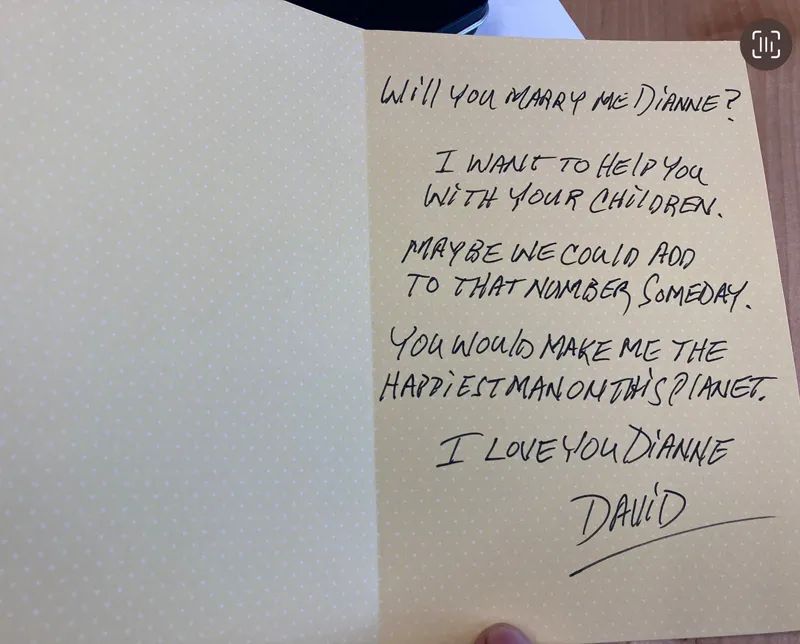 Will YOU MARRY ME DIANNE?
I WANT TO HELP YOU
WITH YOUR CHILDREN.
MAYBE WE COULD ADD
TO THAT NUMBER SOMEDAY.
YOU WOULD MAKE ME THE
HAPPIEST MAN ON THIS PLANET.
I LOVE YOU DIANNE
DAVID